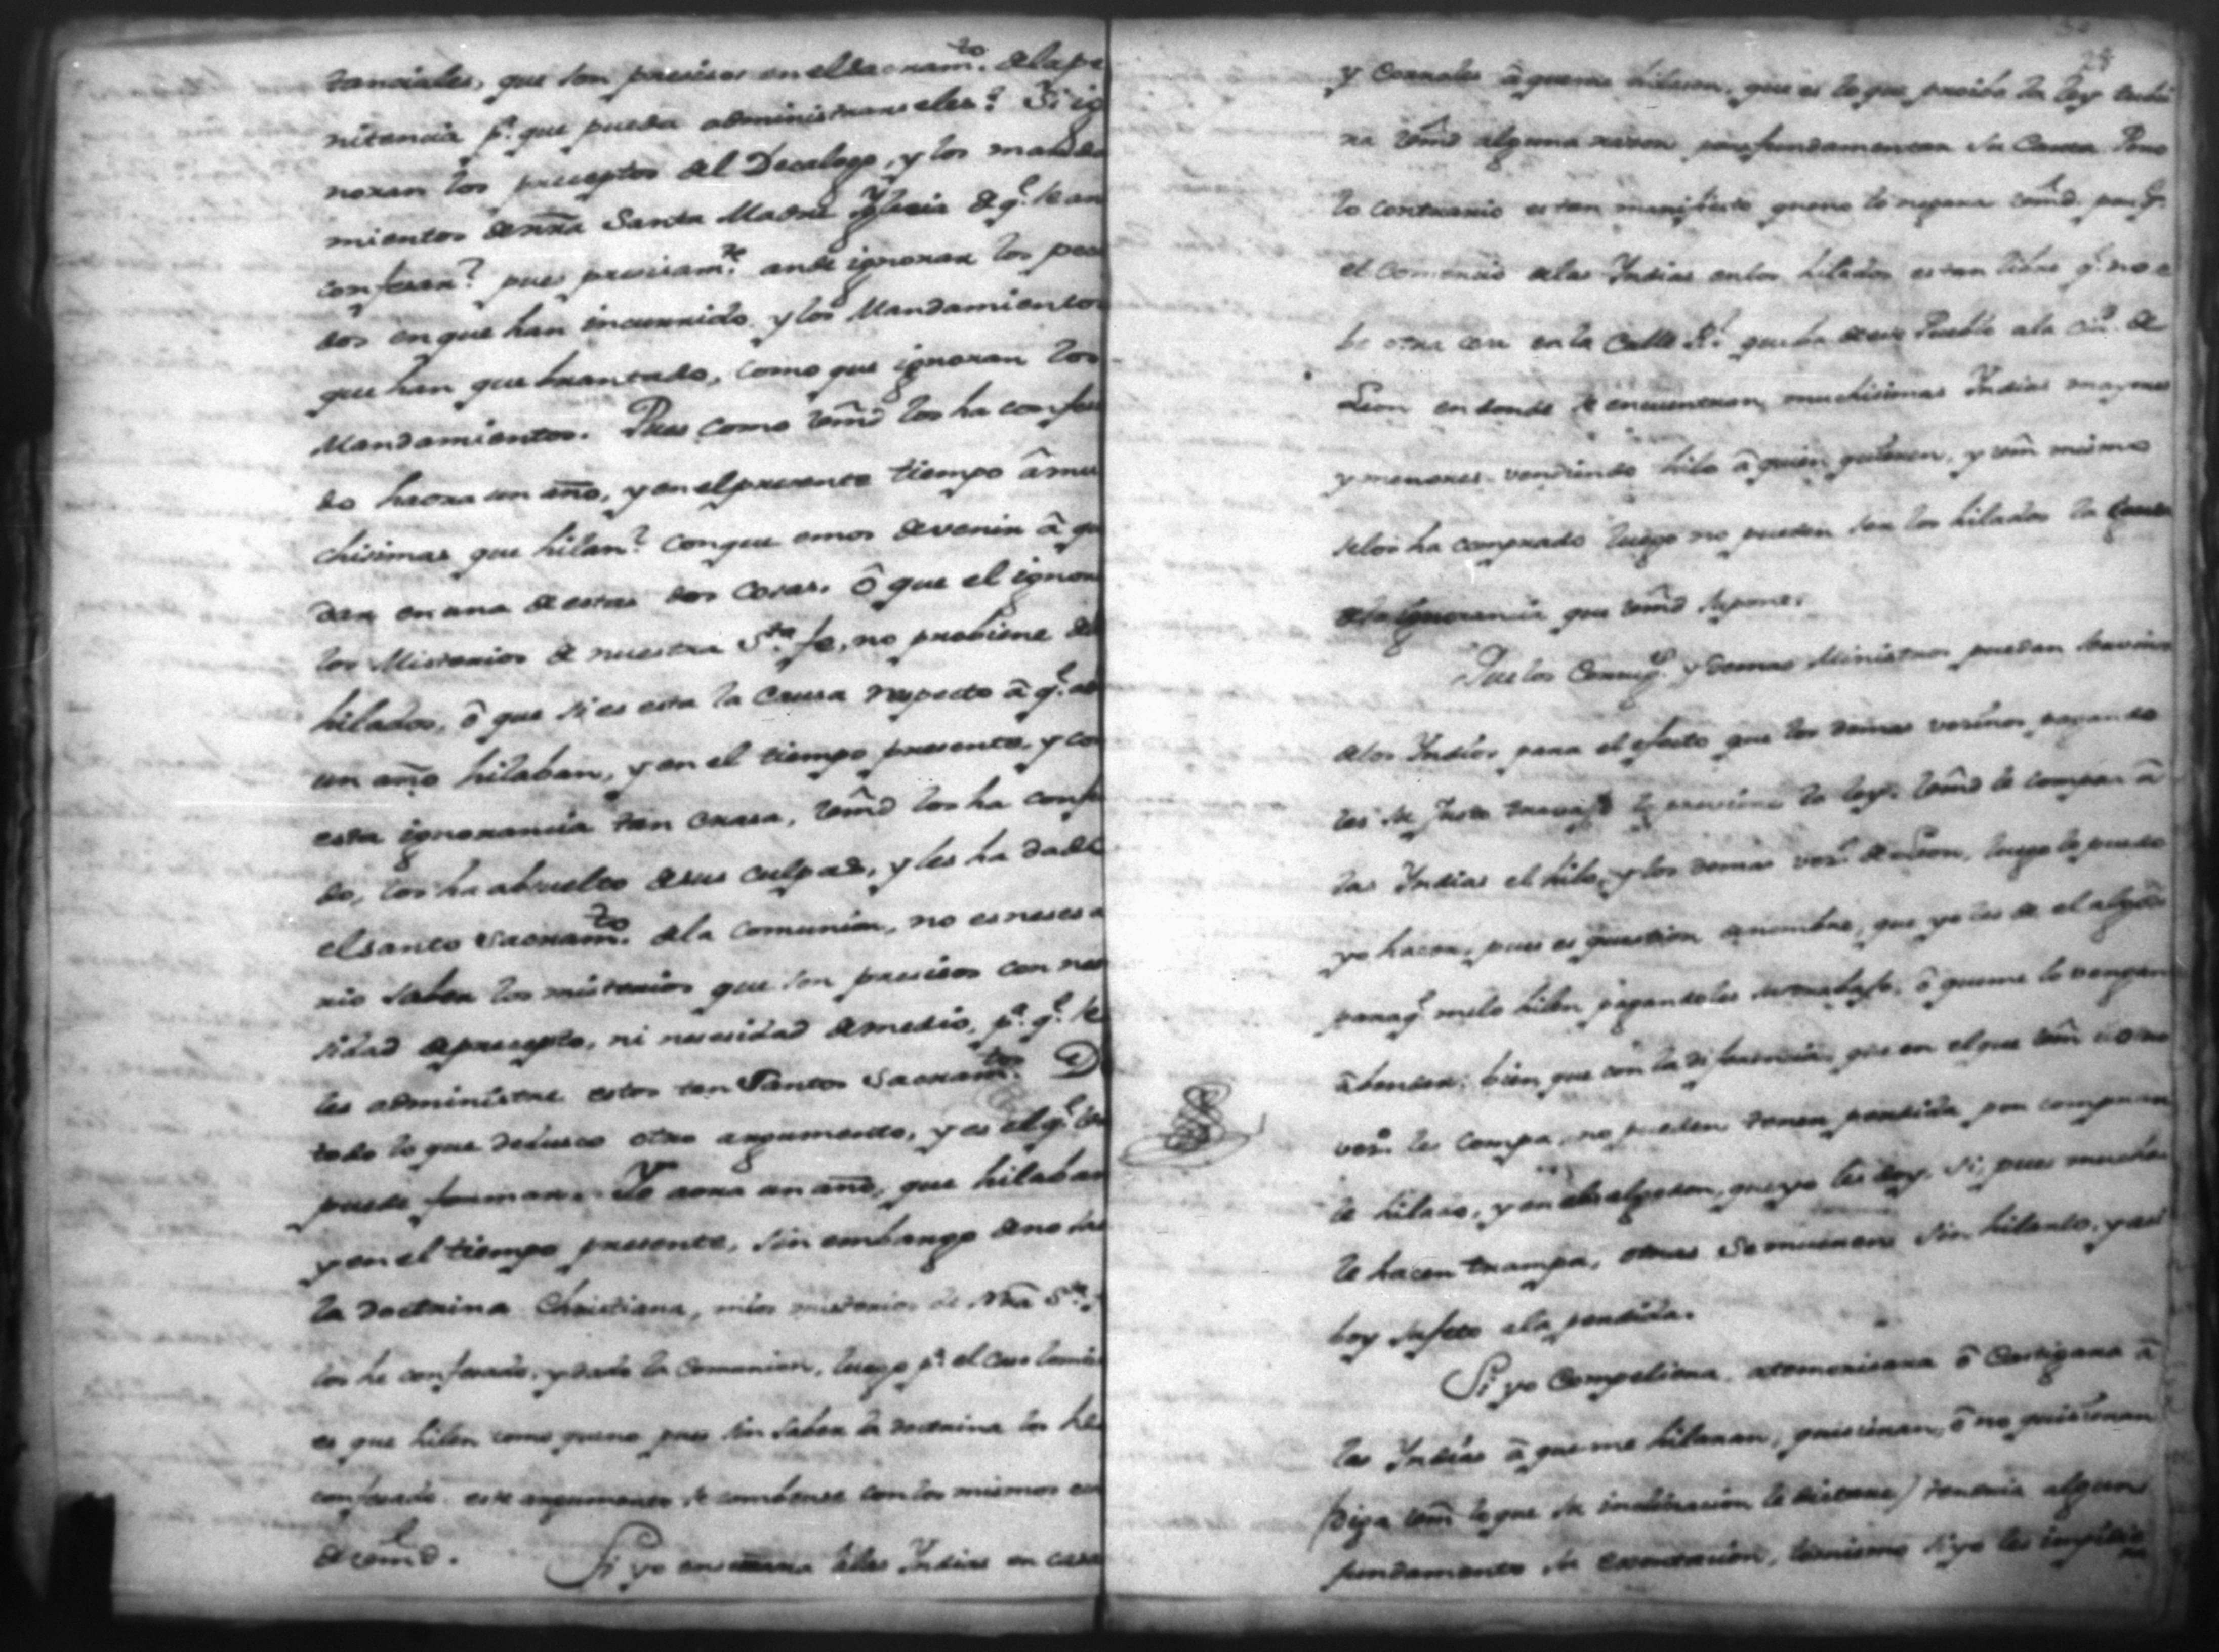 tanciales, que son presisos en el Sacram.to de la pe
nitencia p.a que pueda administrarseles? Si ig
noran los preceptos del Decalogo, y los manda
mientos de nrã Santa Madre Yglesia de q.e se an
confesar? pues presisam.te an de ignorar los peca
dos en que han incurrido y los Mandamientos
que han quebrantado, como que ignoran los
Mandamientos. Pues como vm̃d los ha confesa
do haora un año, y en el presente tiempo â mu
chisimas que hilan? conque emos de venir â que
dar en una de estas dos cosas. ô que el ignorar
los Misterios de nuestra S.ta fe, no probiene del
hilados, ô que si es esta la causa respecto â q.e aora
un año hilaban, y en el tiempo presente, y con
esta ignorancia tan crasa, vm̃d los ha confesa
do, los ha absuelto de sus culpas, y les ha dado
el santo Sacram.to de la comunion, no es nesesa
rio saber los misterios que son presisos con nese
sidad de precepto, ni nesesidad de medio, p.a q.e se
les administre estos tan Santos Sacram.tos D
todo lo que dedusco otro argumento, y es el q.e
puede formar. Yo aora un año, que hilaban
y en el tiempo presente, sin embargo de no sa
la doctrina Christiana, ni los misterios de Nrã S.ta
los he confesado, y dado la Comunion, luego p.a el caso lo mismo
es que hilen como que no pues sin saber la doctrina los he
confesado este argumento se combense con los mismos
de vm̃d. Si yo enserrara a las Yndias en casa
y Corrales â que me hilasen, que es lo que proibe la ley tubie
ra vm̃d alguna razon para fundamentar su Causa. Pero
lo contrario es tan manifiesto que no lo negara vm̃d. por q.e
el comercio de las Yndias en los hilados es tan libre q.e no
be otra cosa en la Calle R.l que ba de ese Pueblo a la ciu.d de
Leon en donde se encuentran muchisimas Yndias mayores
y menores vendiendo hilo â quien quieren, y vm̃ mismo
se los ha comprado luego no pueden ser los hilados la Causa
de la ignorancia que vm̃d supone.
Que los Correg.s y demas Ministros puedan servirse
de los Yndios para el efecto que los demas vesinos pagando
les su justo travajo lo previene la ley. vm̃d le compra â
las Yndias el hilo, y los demas ves.s de Leon, luego lo puedo
yo hacer, pues es question de nombre, que yo les de el algodon
para q.e me lo hilen pagandoles su trabajo, ô que me lo vengan
â bender; bien que con la diferencia, que en el que vm̃ como
ves.o les compra, no pueden tener perdida por comprar
le hilado, y en el algodon, que yo les doy, si, pues muchas
le hacen trampa, otras se mueren sin hilarlo, y asi
boy sujeto a la perdida.
Si yo Compeliera, atemorisara ô Castigara â
las Yndias â que me hilaran, quisieran, ô no quisieran
(diga vm̃ lo que su inclinacion le dictare) tendria algun
fundamento su exortacion, lo mismo si yo les impidie